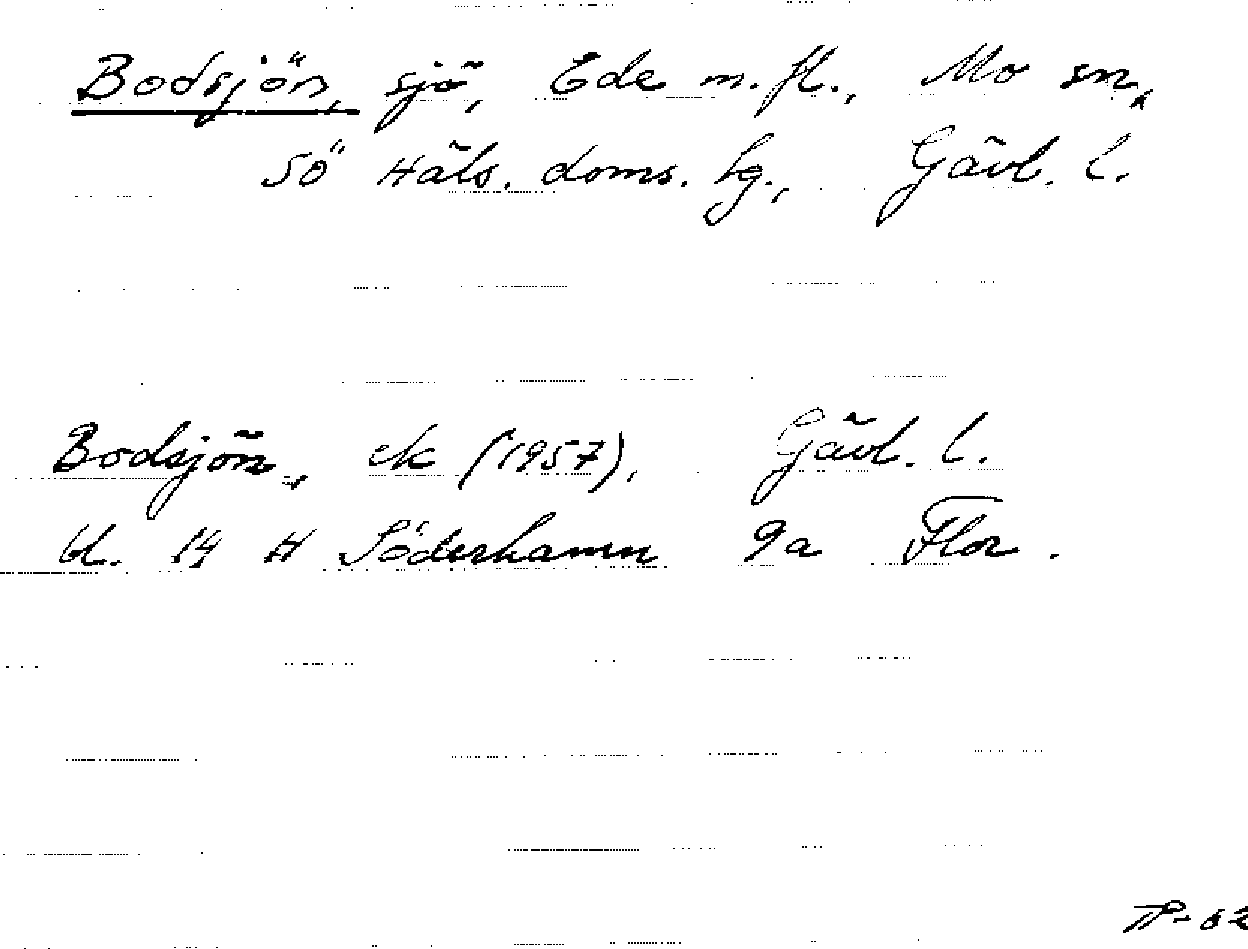 Bodsjön, sjö, Ede m.fl., Mo sn,
Sö Häls. doms. sg., Gävl. l.
Bodsjön, ek (1957), Gävl. l.
bl. 14 H Söderhamn 9a Flor.